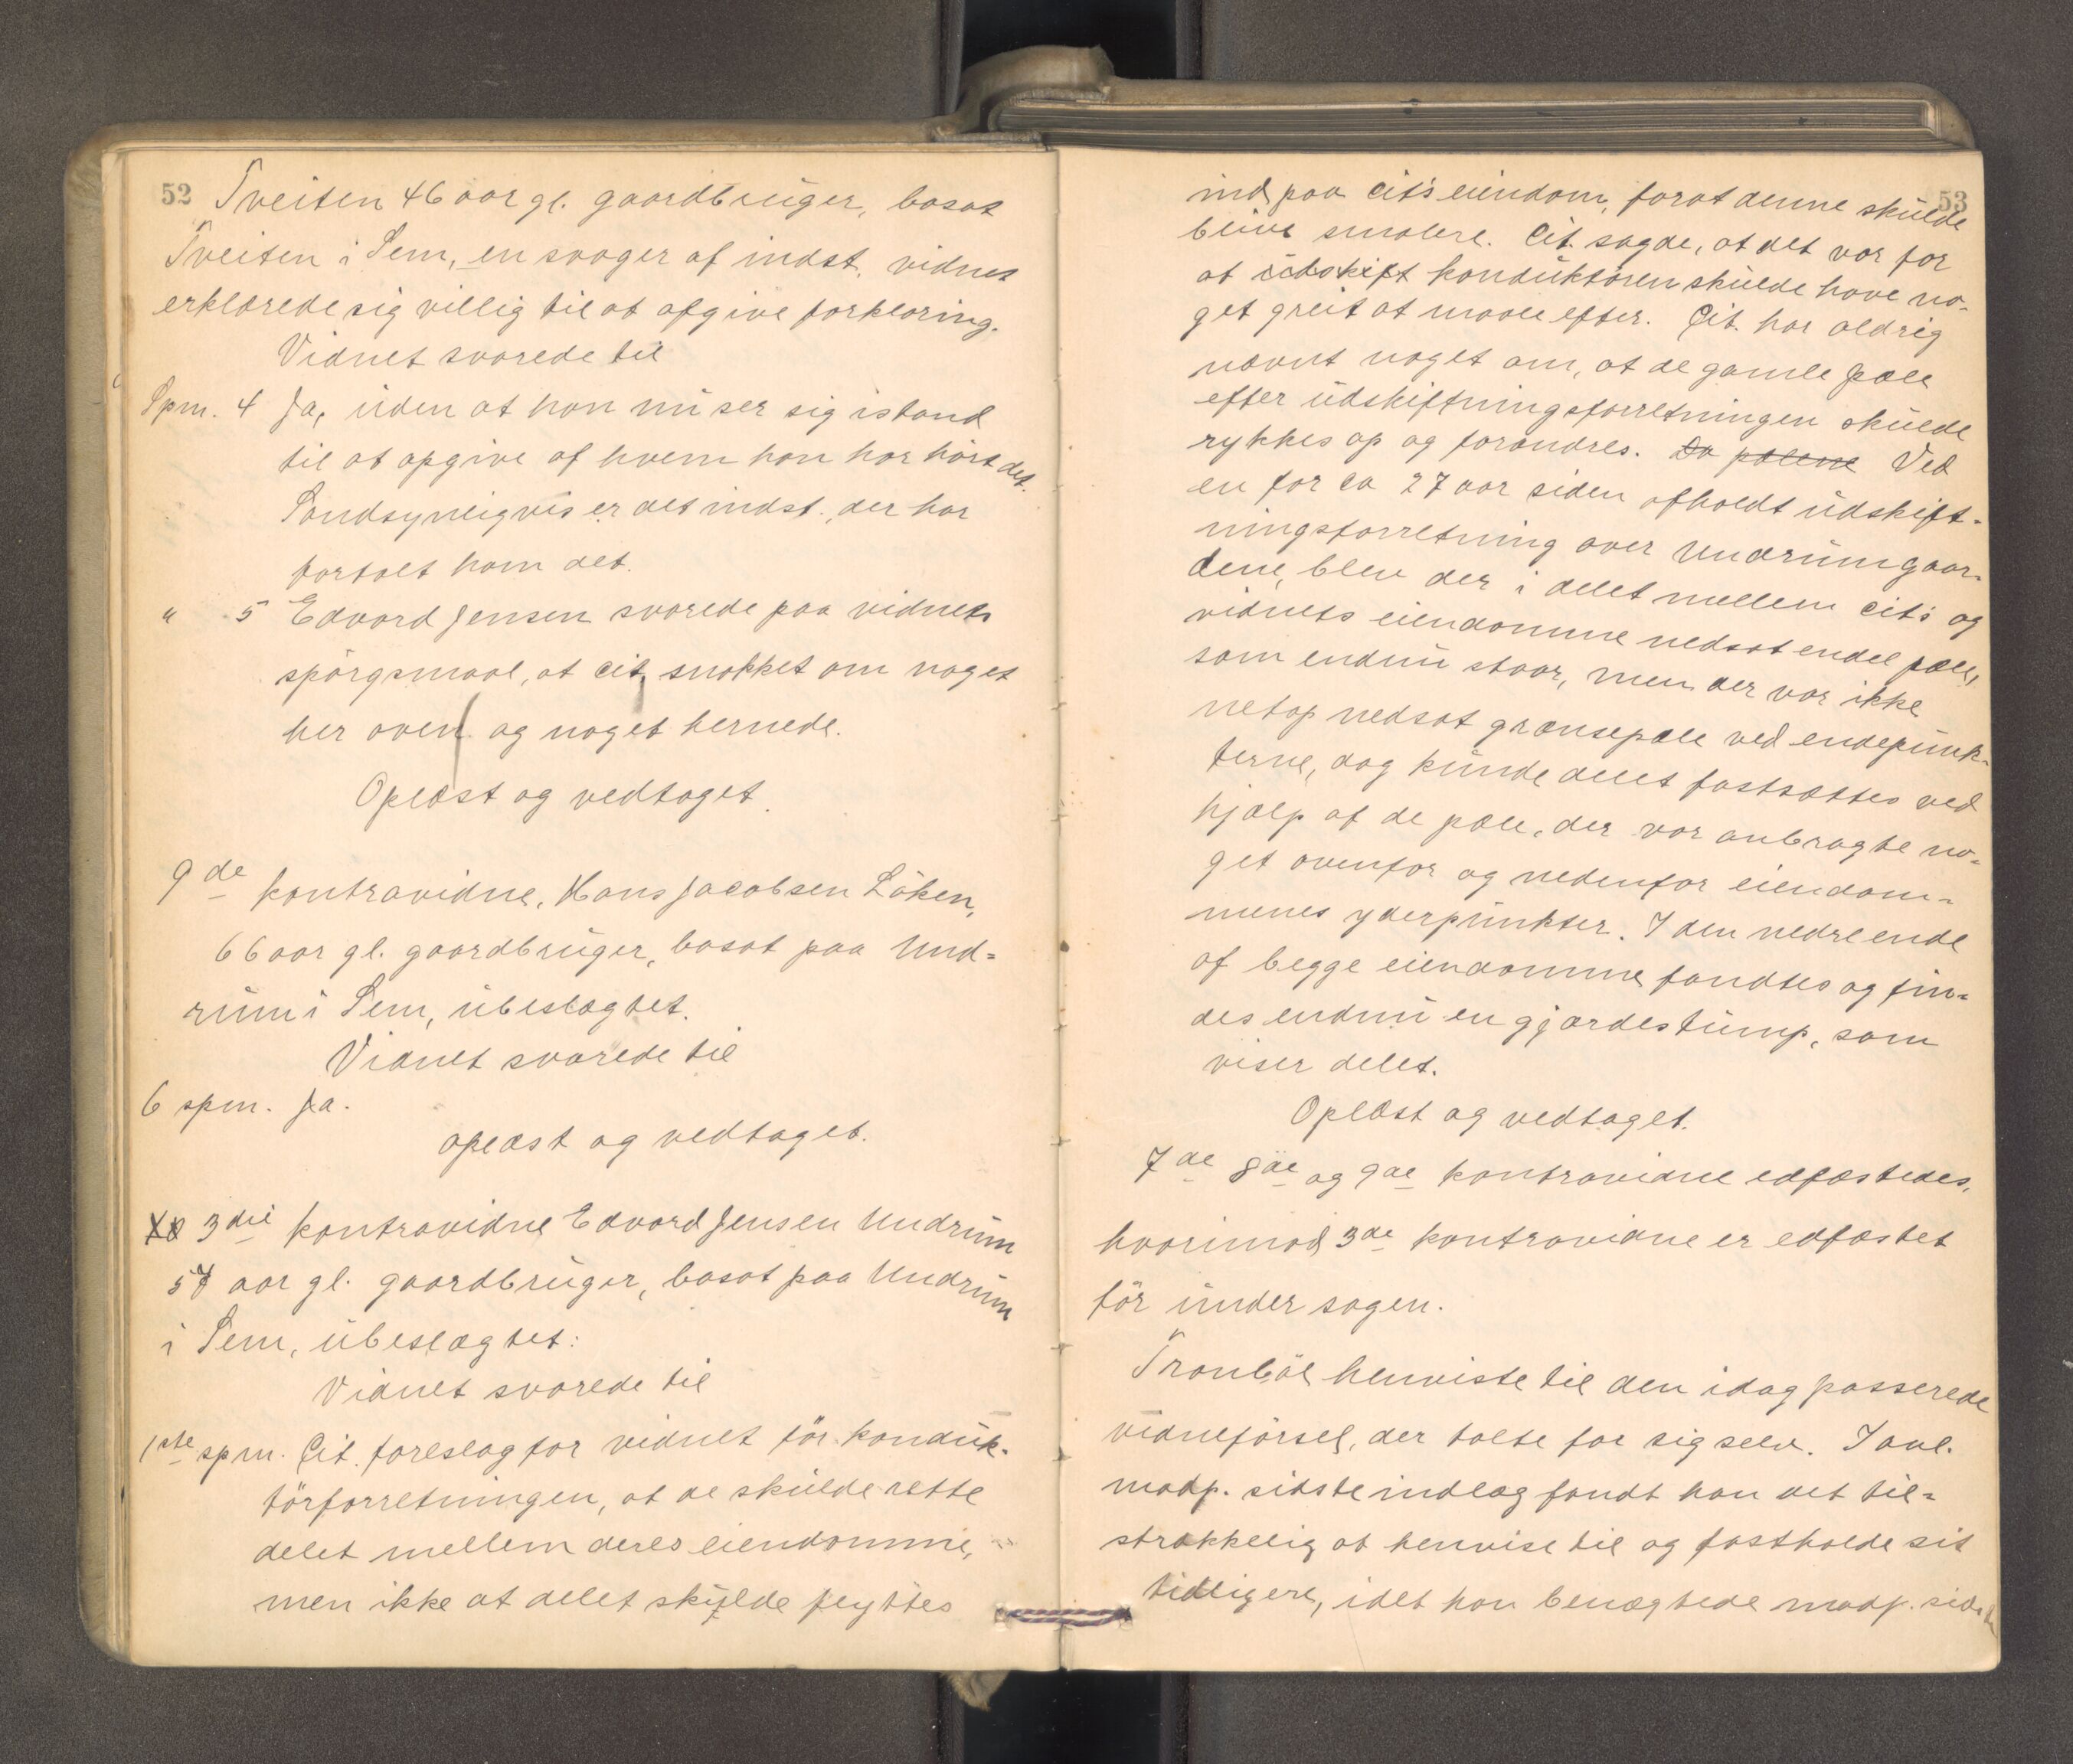 52
Tveiten 46 aar gl. gaardbruger, bosat
Tveiten i Sem, en svoger af indst. vidnet
erklærede sig villig til at afgive forklaring.
Vidnet svarede til
Spm. 4 Ja, uden at han nu ser sig istand
til at opgive af hvem han har hört det.
Sandsynligvis er det indst., der har
fortalt ham det.
" 5 Edvard Jensen svarede paa vidnets
spörgsmaal, at cit. snakket om noget
her oven og noget hernede.
Oplæst og vedtaget.
9de kontravidne, Hans Jacobsen Löken,
66 aar gl. gaardbruger, bosat paa Und=
rum i Sem, ubeslægtet.
Vidnet svarede til
6 spm. Ja.
oplæst og vedtaget.
3die kontravidne Edvard Jensen Undrum
57 aar gl. gaardbruger, bosat paa Undrum
i Sem, ubeslægtet:
Vidnet svarede til
1ste spm. Cit. foreslog for vidnet för konduk-
törforretningen, at de skulde rette
delet mellem deres eiendomme,
men ikke at delet skulde flyttes
53
ind paa cit's eiendom, forat denne skulde
blive smalere. Cit. sagde, at det var for
at udskift konduktören skulde have no-
get greit at maale efter. Cit. har aldrig
nævnt noget om, at de gamle pæle
efter udskiftningsforretningen skulde
rykkes op og forandres. Da pælene Ved
en for ca 27 aar siden afholdt udskift-
ningsforretning over Undrumgaar-
dene, blev der i delet mellem cit's og
vidnets eiendomme nedsat endel pæle,
som endnu staar, men der var ikke
netop nedsat grænsepæle ved endepunk-
terne, dog kunde delet fastsættes ved
hjælp af de pæle, der var anbragte no=
get ovenfor og nedenfor eiendom=
menes yderpunkter. I den nedre ende
af begge eiendomme fandtes og fin=
des endnu en gjærdestump, som
viser delet.
Oplæst og vedtaget.
7de 8de og 9de kontravidne edfæstedes,
hvorimod 3de kontravidne er edfæstet
för under sagen.
Tranböl henviste til den idag passerede
vidneförsel, der talte for sig selv. I anl.
modp. sidste indlæg fandt han det til=
strækkelig at henvise til og fastholde sit
tidligere, idet han benægtede modp. sidste